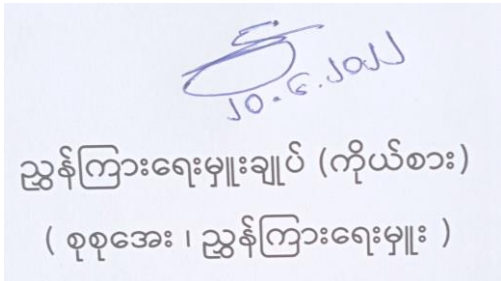 ၂၀.၆.၂၀၂၂
ညွှန်ကြားရေးမှူးချုပ် (ကိုယ်စား)
( စုစုအေး ၊ ညွှန်ကြားရေးမှူး )